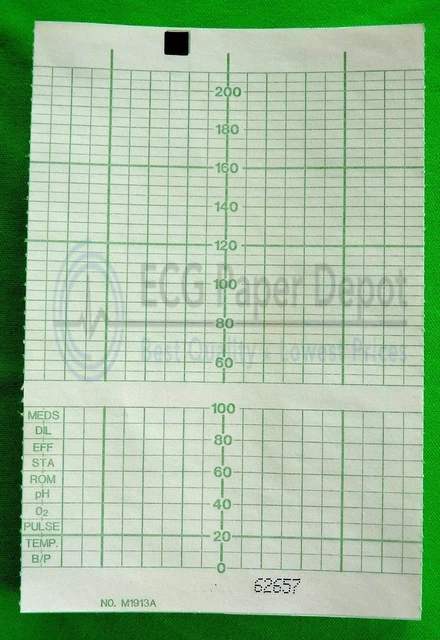 200
180
160
140
120
ECG Paper Depot
100
80
Best Quality & Lowest Prices
60
MEDS
100
DIL
80
EFF
STA
60
ROM
pH
40
O₂
PULSE
20
TEMP.
B/P
0
62657
NO. M1913A